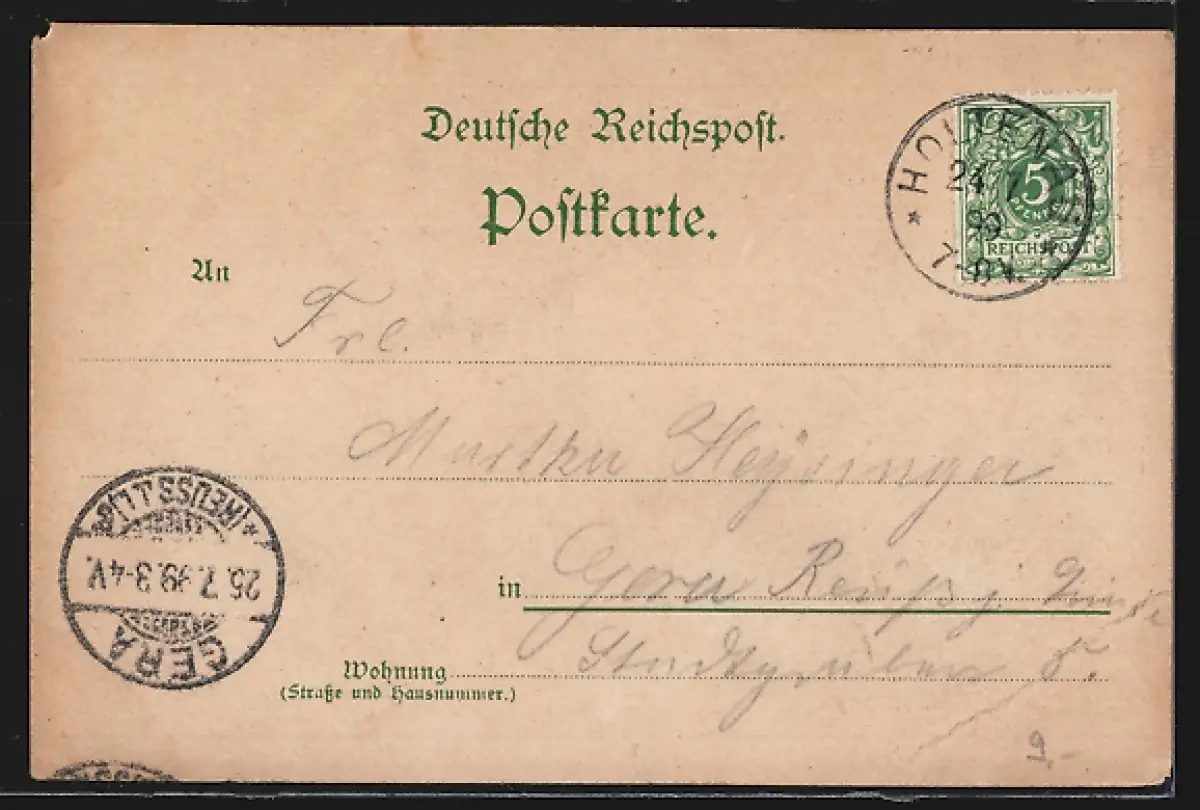 Deutsche Reichspost.
Postkarte.
HOLTENAU
24 7
99
7-8V.
5
PFENNIG
REICHSPOST
An
Frl.
Martha Heysinger
in Gera Reuß j. Linie
Wohnung Stadtgraben 5.
(Straße und Hausnummer.)
GERA
25.7.99.3-4V.
*(REUSS J.L.)*
9.-